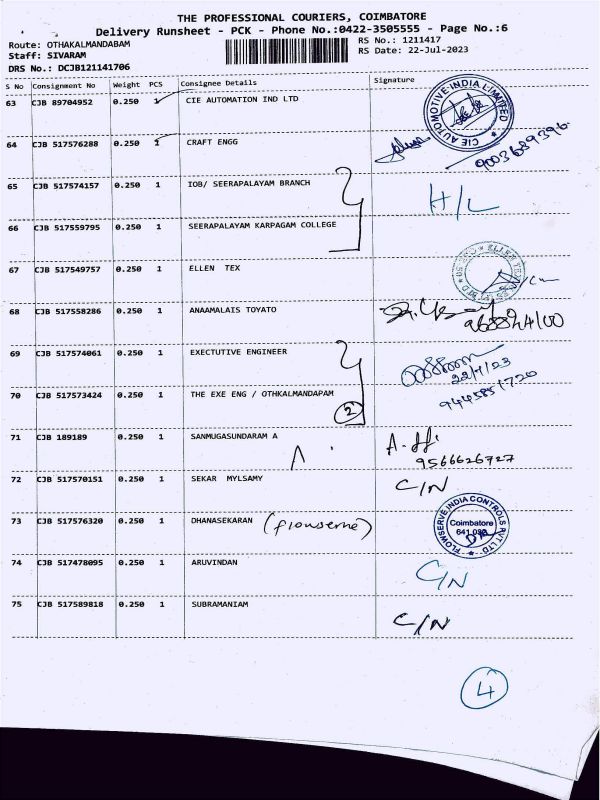 THE PROFESSIONAL COURIERS, COIMBATORE
Delivery Runsheet - PCK - Phone No.:0422-3505555 - Page No.:6
Route: OTHAKALMANDABAM
Staff: SIVARAM
DRS No.: DCJB121141706
RS No.: 1211417
RS Date: 22-Jul-2023
S No Consignment No Weight PCS Consignee Details Signature
63 CJB 89704952 0.250 1 CIE AUTOMATION IND LTD
CIE AUTOMOTIVE INDIA LIMITED
64 CJB 517576288 0.250 1 CRAFT ENGG 9003689396
65 CJB 517574157 0.250 1 IOB/ SEERAPALAYAM BRANCH H/L
66 CJB 517559795 0.250 1 SEERAPALAYAM KARPAGAM COLLEGE
67 CJB 517549757 0.250 1 ELLEN TEX
68 CJB 517558286 0.250 1 ANAAMALAIS TOYATO
69 CJB 517574061 0.250 1 EXECTUTIVE ENGINEER
22/7/23
70 CJB 517573424 0.250 1 THE EXE ENG / OTHKALMANDAPAM 2 9445851720
71 CJB 189189 0.250 1 SANMUGASUNDARAM A
9566626727
72 CJB 517570151 0.250 1 SEKAR MYLSAMY C/N
73 CJB 517576320 0.250 1 DHANASEKARAN (flowserve)
FLOWSERVE INDIA CONTROLS PVT LTD
Coimbatore
74 CJB 517478095 0.250 1 ARUVINDAN C/N
75 CJB 517589818 0.250 1 SUBRAMANIAM C/N
4